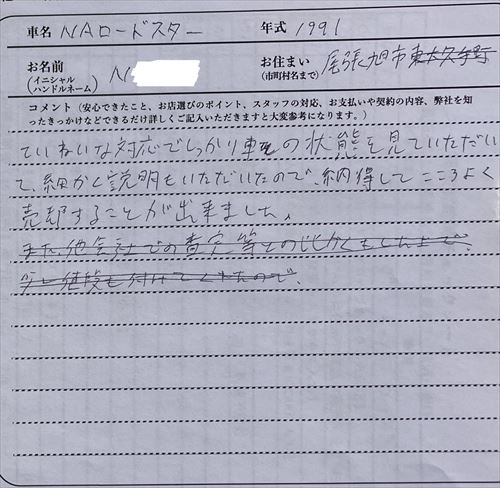 車名 NAロードスター 年式 1991
お名前 N
(イニシャル
ハンドルネーム)
お住まい 尾張旭市東大久手町
(市町村名まで)
コメント（安心できたこと、お店選びのポイント、スタッフの対応、お支払いや契約の内容、弊社を知
ったきっかけなどできるだけ詳しくご記入いただきますと大変参考になります。）
ていねいな対応でしっかり車の状態を見ていただい
て、細かく説明もいただいたので、納得してこころよく
売却することが出来ました。
また、他会社での査定等とのひかくもした上で、
値段も付けてくれたので、